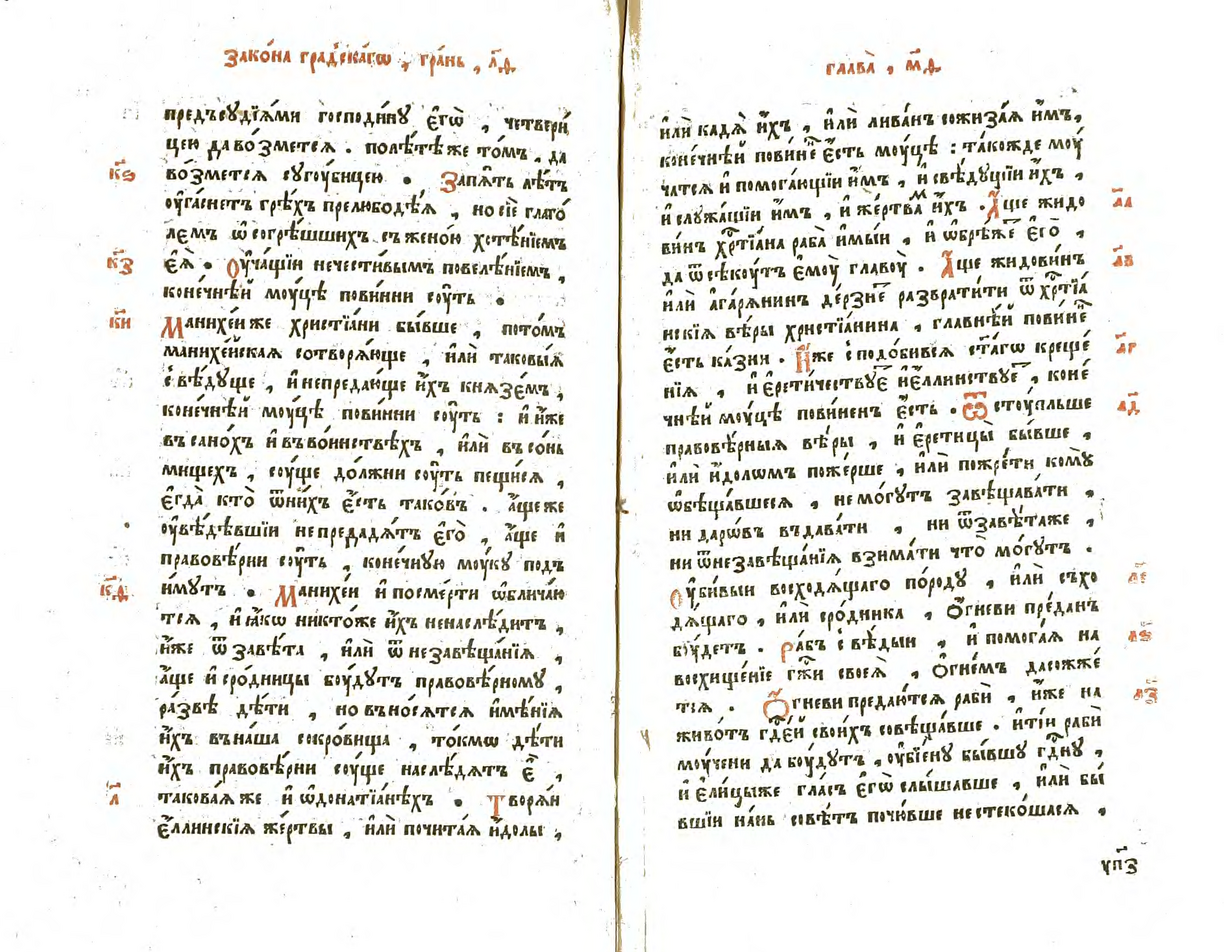 Зако́на гра́дскагѡ , гра́нь , л҃ѳ.
предъсꙋдїѧ́ми господи́нꙋ є҆гѡ̀ , четвери́
цею да во́зметсѧ . полѣ́тѣже то́мъ , да
к҃ѕ
во́зметсѧ сꙋгꙋ́бицею . Запѧ́ть лѣ́тъ
оу҆га́снетъ грѣ́хъ прелюбодѣ́ѧ , но сїѐ глаго́
лемъ ѡ҆согрѣ́шшихъ съ жено́ю хотѣ́нїемъ
к҃з
є҆ѧ̀ . Оу҆ча́щїи нечести́вымъ повелѣ́нїемъ ,
коне́чнѣй моу́цѣ пови́нни сꙋ́ть .
к҃и
Манихе́и же христїа́ни бы́вше , пото́мъ
манихе́йскаѧ сотворѧ́юще , и҆лѝ таковы́ѧ
свѣ́дꙋще , и҆ непредаю́ще и҆́хъ кнѧзе́мъ ,
коне́чнѣй моу́цѣ пови́нни сꙋ́ть : и҆ и҆́же
въ сано́хъ и҆ въ во́инствѣхъ , и҆лѝ въ со́нь
мищехъ , сꙋ́ще до́лжни сꙋ́ть пещи́сѧ ,
є҆гда̀ кто̀ ѿ ни́хъ є҆́сть тако́въ . а҆́ще же
оу҆вѣ́дѣвшїи не предадѧ́тъ є҆го̀ , а҆́ще и҆
правовѣ́рни сꙋ́ть , коне́чнꙋю моу́кꙋ подъ
к҃ѳ
и҆́мꙋтъ . Манихе́и и҆ по сме́рти ѡ҆блича́ю
тсѧ , и҆ ꙗ҆́кѡ никто́же и҆́хъ ненаслѣ́дитъ ,
и҆́же ѿ завѣ́та , и҆лѝ ѿ незавѣща́нїѧ ,
а҆́ще и҆ сро́дницы бꙋ́дꙋтъ правовѣ́рномꙋ ,
ра́звѣ дѣ́ти , но въно́сѧтсѧ и҆мѣ́нїѧ
и҆́хъ въ на́ша сокро́вища , то́кмѡ дѣ́ти
и҆́хъ правовѣ́рни сꙋ́ще наслѣ́дѧтъ є҆̀ ,
л҃
такова́ѧ же и҆ ѡ҆ донатїа́нѣхъ . Творѧ́и
є҆́ллинскїѧ же́ртвы , и҆лѝ почита́ѧ и҆́долы ,
глава̀ , м҃ѳ.
и҆лѝ кадѧ̀ и҆́хъ , и҆лѝ лива́нъ сожиза́ѧ и҆́мъ ,
коне́чнѣй пови́не є҆́сть моу́цѣ : та́кожде моу́
чатсѧ и҆ помога́ющїи и҆́мъ , и҆ свѣ́дꙋщїи и҆́хъ ,
л҃а
и҆ слꙋжа́щїи и҆́мъ , и҆ же́ртвам и҆́хъ . А҆́ще жидо
ви́нъ хрⷭ҇тїа́на раба̀ и҆мы́и , и҆ ѡ҆брѣ́же є҆го̀ ,
л҃в
да ѿсѣкꙋ́тъ є҆мꙋ̀ главꙋ̀ . А҆́ще жидови́нъ
и҆лѝ а҆гарѧ́нинъ де́рзне разврати́ти ѿ хрⷭ҇тїа́
нскїѧ вѣ́ры христїа́нина , гла́внѣй пови́не
л҃г
є҆́сть ка́зни . И҆́же сподо́бивсѧ ст҃а́гѡ креще́
нїѧ , и҆ є҆рети́чествꙋе и҆ є҆́ллинствꙋе , коне́
л҃д
чнѣй моу́цѣ пови́ненъ є҆́сть . Ѿстꙋ́пльше
правовѣ́рныѧ вѣ́ры , и҆ є҆ретицы̀ бы́вше ,
и҆лѝ и҆́доломъ поже́рше , и҆лѝ пожре́ти комꙋ̀
ѡ҆бѣща́вшесѧ , не мо́гꙋтъ завѣщава́ти ,
ни даро́въ въдава́ти , ни ѿ завѣ́та же ,
ни ѿ незавѣща́нїѧ взима́ти что̀ мо́гꙋтъ .
л҃е
Оу҆би́выи восходѧ́щаго по́родꙋ , и҆лѝ съхо
дѧ́щаго , и҆лѝ сро́дника , ѻ҆гневи пре́данъ
л҃ѕ
бꙋ́детъ . Ра́бъ свѣ́дыи , и҆ помога́ѧ на
восхище́нїе гж҃и своеѧ̀ , ѻ҆гне́мъ да сожже́
л҃з
тсѧ . Ѻ҆гневи предаю́тсѧ рабѝ , и҆́же на
живо́тъ гдⷭ҇е́й свои́хъ совѣща́вше . и҆ ті́и рабѝ
моу́чени да бꙋ́дꙋтъ , оу҆бїе́нꙋ бы́вшꙋ гдⷭ҇нꙋ ,
и҆ є҆ли́цыже гла́съ є҆гѡ̀ слы́шавше , и҆лѝ бы́
вшїи на́нь совѣ́тъ почю́вше не стеко́шасѧ ,
ꙋп҃з